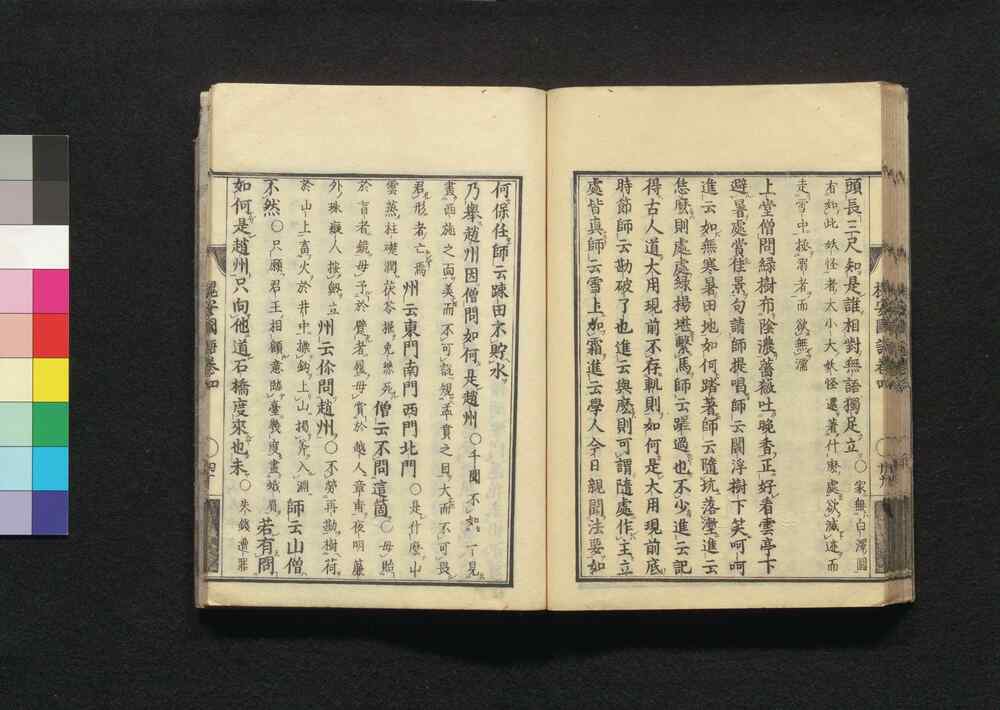 頭長三尺知是誰相對無語獨足立〇家無白澤圖
有如此妖怪者大小大妖怪還著什麼處欲滅迹而
走雪中拯溺者而欲無濡
上堂僧問綠樹布陰濃薔薇吐晚香正好看雲亭下
避暑處賞佳景句請師提唱師云閻浮樹下笑呵呵
進云如無寒暑田地如何踏著師云隨坑落壍進云
恁麼則處處綠楊堪繫馬師云蹉過也不少進云記
得古人道大用現前不存軌則如何是大用現前底
時節師云勘破了也進云與麼則可謂隨處作主立
處皆眞師云雪上加霜進云學人今日親聞法要如
槐安國語卷四
何保任師云踈田不貯水
乃擧趙州因僧問如何是趙州〇千聞不如一見
畫西施之面美而不可說規孟賁之目大而不可畏
君形者亡焉 州云東門南門西門北門〇是什麼
雲蒸柱礎潤茯苓掘兔絲死 僧云不問這箇〇毋貽
於盲者鏡毋予於躄者履毋賞於越人章甫夜明簾
外珠癡人按劒立 州云伱問趙州〇不勞再勘
於山上畜火於井中操鈎上山揭斧入淵 師云山僧
不然〇只願君王相顧意臨臺幾度畫蛾眉 若有問
如何是趙州只向他道石橋度來也未〇
槐安國語卷四